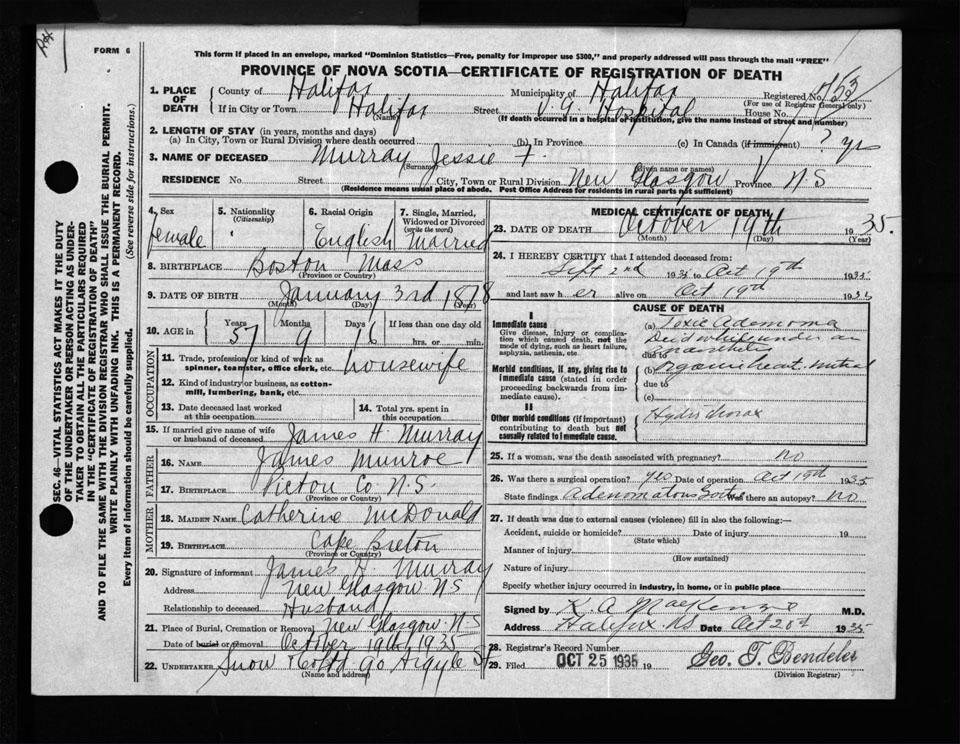 FORM 6
This form if placed in an envelope, marked "Dominion Statistics—Free, penalty for improper use $300," and properly addressed will pass through the mail "FREE"
PROVINCE OF NOVA SCOTIA—CERTIFICATE OF REGISTRATION OF DEATH
1. PLACE OF DEATH County of Halifax Municipality of Halifax Registered No.
(For use of Registrar General only)
If in City or Town Halifax Street V. G. Hospital House No.
(Name) (If death occurred in a hospital or institution, give the name instead of street and number)
2. LENGTH OF STAY (in years, months and days)
(a) In City, Town or Rural Division where death occurred (b) In Province (c) In Canada (if immigrant) ? yrs
3. NAME OF DECEASED Murray Jessie F.
(Surname) (Given name or names)
RESIDENCE No. Street City, Town or Rural Division New Glasgow Province N.S
(Residence means usual place of abode. Post Office Address for residents in rural parts not sufficient)
4. Sex female
5. Nationality (Citizenship) "
6. Racial Origin English
7. Single, Married, Widowed or Divorced (write the word) Married
8. BIRTHPLACE Boston Mass
(Province or Country)
9. DATE OF BIRTH January 3rd 1878
(Month) (Day) (Year)
10. AGE in Years 57 Months 9 Days 16 If less than one day old hrs. or min.
OCCUPATION
11. Trade, profession or kind of work as spinner, teamster, office clerk, etc. housewife
12. Kind of industry or business, as cotton-mill, lumbering, bank, etc.
13. Date deceased last worked at this occupation
14. Total yrs. spent in this occupation
15. If married give name of wife or husband of deceased James H. Murray
FATHER
16. NAME James Munroe
17. BIRTHPLACE Pictou Co. N.S.
(Province or Country)
MOTHER
18. MAIDEN NAME Catherine McDonald
19. BIRTHPLACE Cape Breton
(Province or Country)
20. Signature of informant James H. Murray
Address New Glasgow NS
Relationship to deceased Husband
21. Place of Burial, Cremation or Removal New Glasgow N.S
Date of burial or removal October 19th 1935
22. UNDERTAKER Snow & Co Ltd 90 Argyle St
(Name and address)
MEDICAL CERTIFICATE OF DEATH
23. DATE OF DEATH October 19th 1935.
(Month) (Day) (Year)
24. I HEREBY CERTIFY that I attended deceased from:
Sept 2nd 1935 to Oct 19th 1935
and last saw her alive on Oct 19th 1935
CAUSE OF DEATH
I
Immediate cause
Give disease, injury or complication which caused death, not the mode of dying, such as heart failure, asphyxia, asthenia, etc.
(a) Toxic Adenoma
Died while under an
due to anaesthetic
Morbid conditions, if any, giving rise to immediate cause (stated in order proceeding backwards from immediate cause).
(b) organic heart. mitral
due to
(c)
II
Other morbid conditions (if important) contributing to death but not causally related to immediate cause.
Hydrothorax
25. If a woman, was the death associated with pregnancy? no
26. Was there a surgical operation? yes Date of operation Oct 19th 1935
State findings Adenomatous Was there an autopsy? no
27. If death was due to external causes (violence) fill in also the following:—
Accident, suicide or homicide? Date of injury 19
(State which)
Manner of injury
(How sustained)
Nature of injury
Specify whether injury occurred in industry, in home, or in public place
Signed by K. A. MacKenzie M.D.
Address Halifax. NS Date Oct 20th 1935
28. Registrar's Record Number
29. Filed OCT 25 1935 19 Geo. T. Bendeler
(Division Registrar)
SEC. 46—VITAL STATISTICS ACT MAKES IT THE DUTY
OF THE UNDERTAKER OR PERSON ACTING AS UNDER-
TAKER TO OBTAIN ALL THE PARTICULARS REQUIRED
IN THE "CERTIFICATE OF REGISTRATION OF DEATH"
AND TO FILE THE SAME WITH THE DIVISION REGISTRAR WHO SHALL ISSUE THE BURIAL PERMIT.
WRITE PLAINLY WITH UNFADING INK. THIS IS A PERMANENT RECORD.
Every item of information should be carefully supplied. (See reverse side for instructions.)